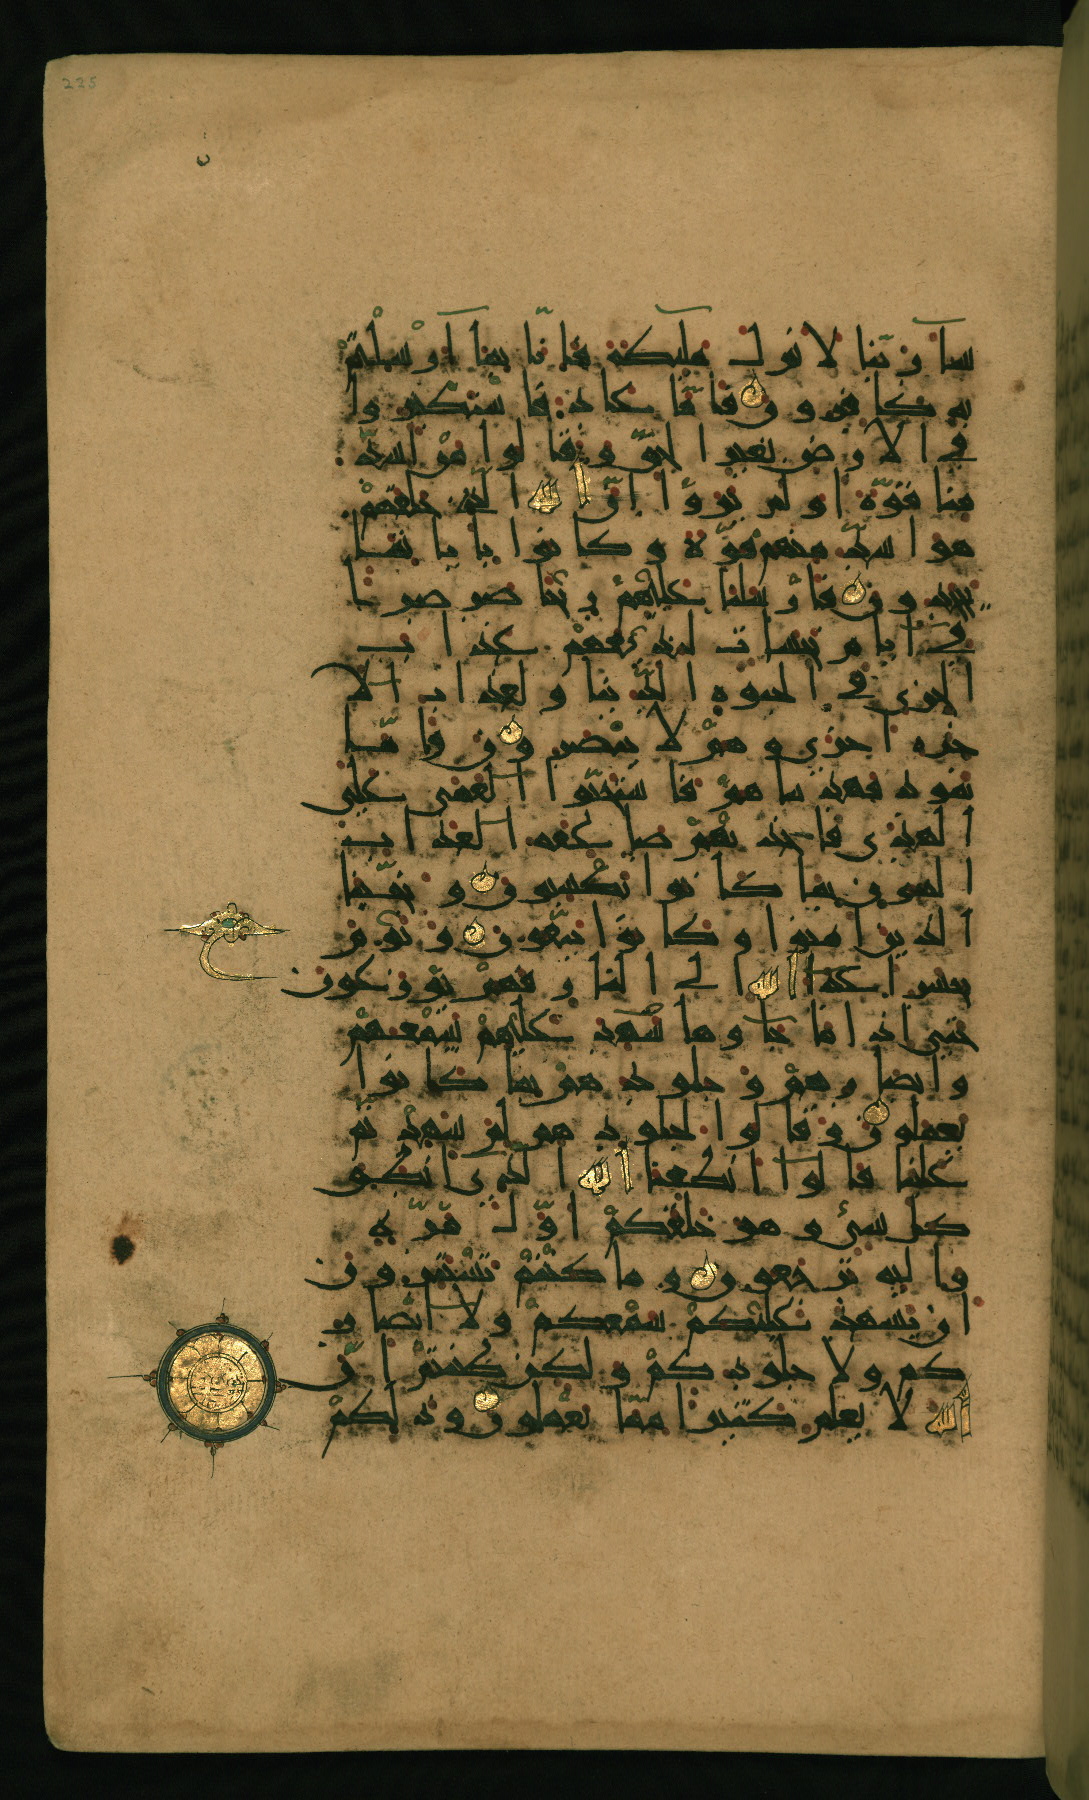 225
شآ ربنا لانزل مليكة فانا بما ارسلتم
به كافرون فاما عاد فاستكبروا
في الارض بغير الحق وقالوا من اشد
منا قوة اولم يروا ان الله الذي خلقهم
هو اشد منهم قوة وكانوا باياتنا
يجحدون فارسلنا عليهم ريحا صرصرا
في ايام نحسات لنذيقهم عذاب
الخزي في الحيوة الدنيا ولعذاب الا
خرة اخزى وهم لا ينصرون واما
ثمود فهديناهم فاستحبوا العمى على
الهدى فاخذتهم صاعقة العذاب
الهون بما كانوا يكسبون ونجينا
الذين امنوا وكانوا يتقون ويوم
يحشر اعدا الله الى النار فهم يوزعون
حتى اذا ما جاوها شهد عليهم سمعهم
وابصارهم وجلودهم بما كانوا
يعملون وقالوا لجلودهم لم شهدتم
علينا قالوا انطقنا الله الذي انطق
كل شئ وهو خلقكم اول مرة
واليه ترجعون وما كنتم تستترون
ان يشهد عليكم سمعكم ولا ابصار
كم ولا جلودكم ولكن ظننتم ان
الله لا يعلم كثيرا مما تعملون وذلكم